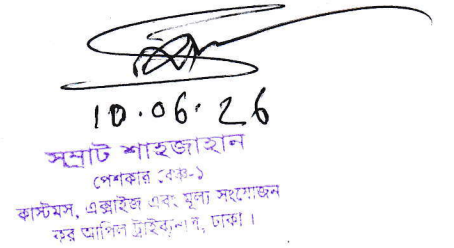 10.06.26
সম্রাট শাহজাহান
পেশকার বেঞ্চ-১
কাস্টমস, এক্সাইজ এবং মূল্য সংযোজন
কর আপিল ট্রাইব্যুনাল, ঢাকা।